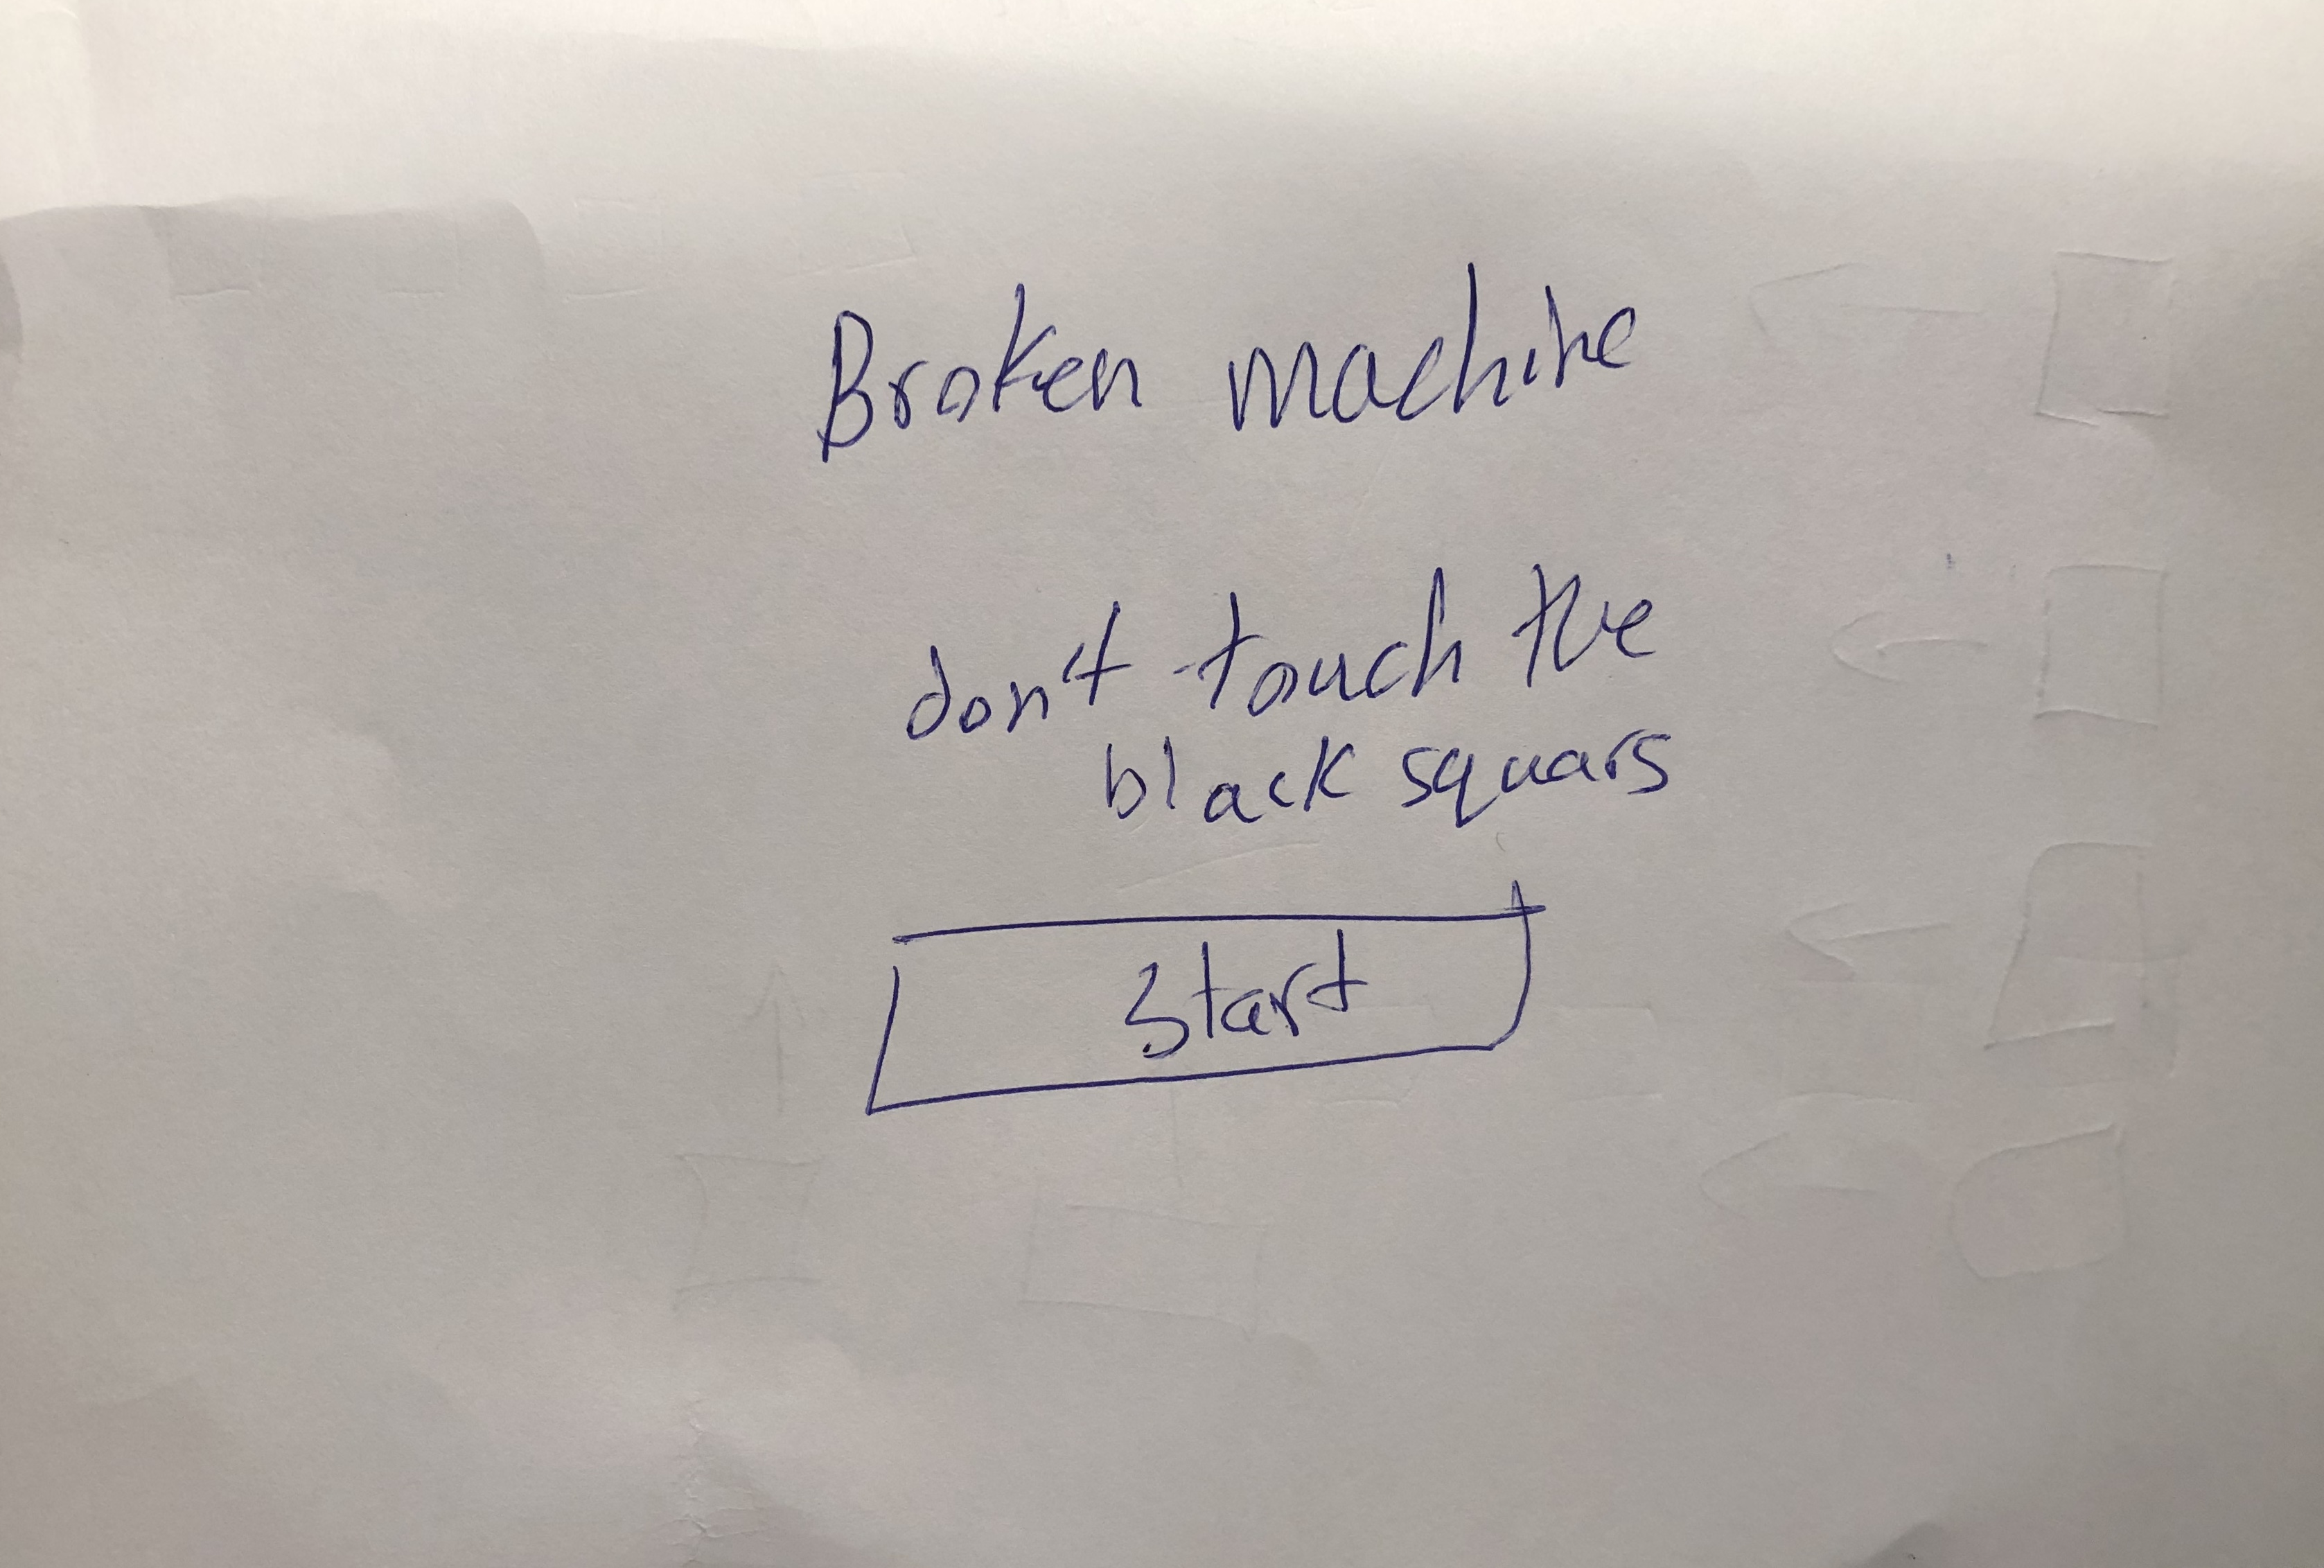 Broken machine
don't touch the
black squars
Start